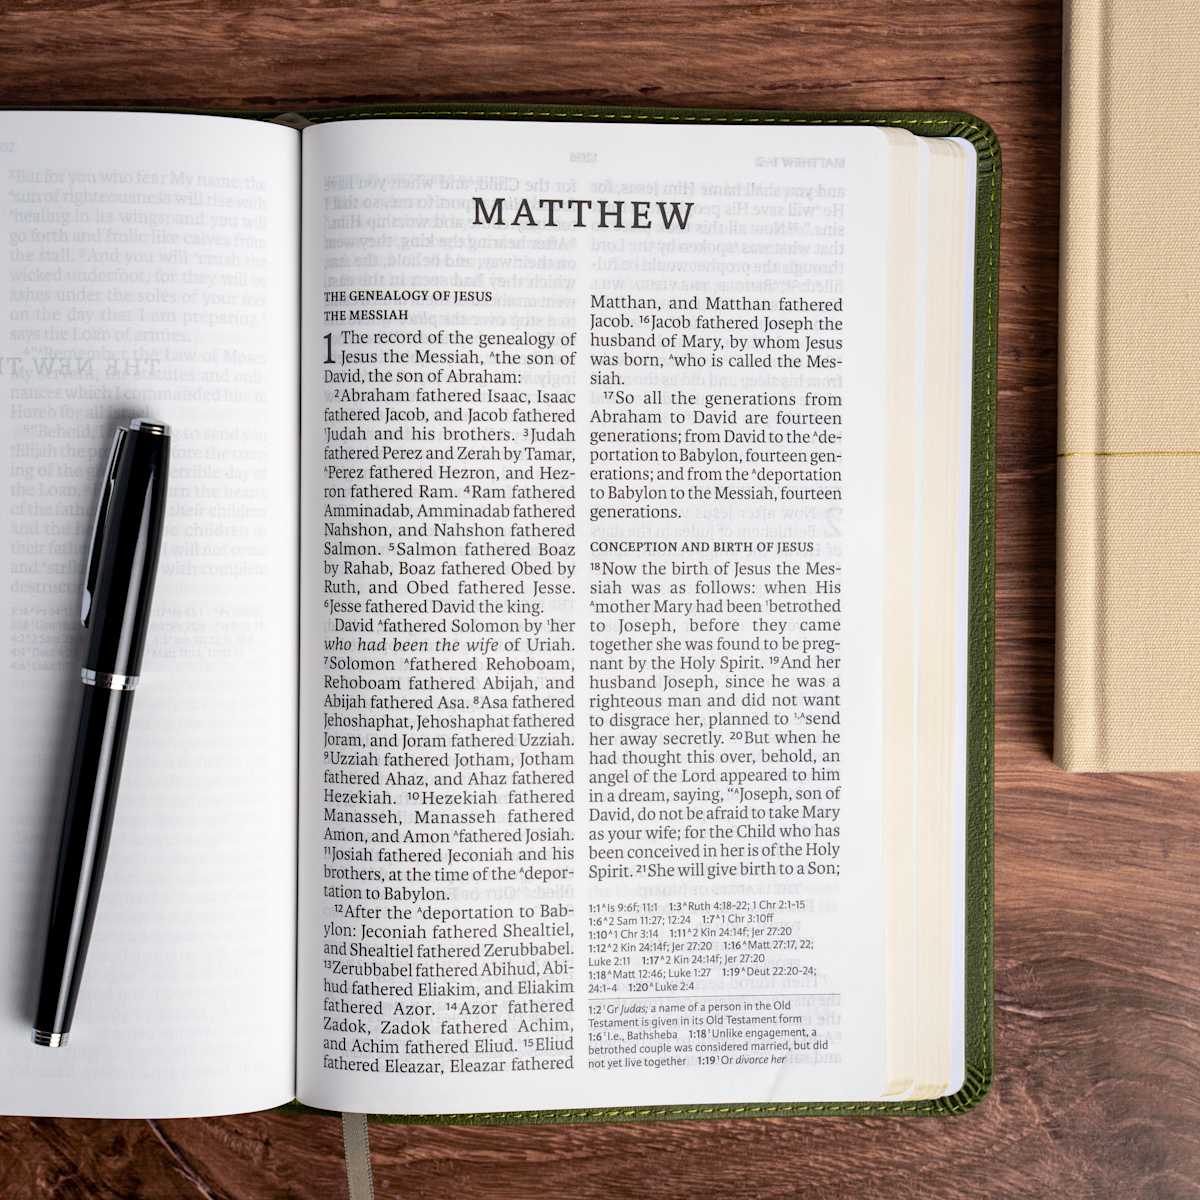 But for you who fear My name, the
sun of righteousness will rise with
healing in its wings; and you will
go forth and frolic like calves from
the stall. ³And you will crush the
wicked underfoot, for they will be
ashes under the soles of your feet
on the day that I am preparing,"
says the LORD of armies.
MATTHEW
THE GENEALOGY OF JESUS
THE MESSIAH
1 The record of the genealogy of
Jesus the Messiah, ᴬthe son of
David, the son of Abraham:
²Abraham fathered Isaac, Isaac
fathered Jacob, and Jacob fathered
¹Judah and his brothers. ³Judah
fathered Perez and Zerah by Tamar,
ᴬPerez fathered Hezron, and Hez-
ron fathered Ram. ⁴Ram fathered
Amminadab, Amminadab fathered
Nahshon, and Nahshon fathered
Salmon. ⁵Salmon fathered Boaz
by Rahab, Boaz fathered Obed by
Ruth, and Obed fathered Jesse.
⁶Jesse fathered David the king.
David ᴬfathered Solomon by ¹her
who had been the wife of Uriah.
⁷Solomon ᴬfathered Rehoboam,
Rehoboam fathered Abijah, and
Abijah fathered Asa. ⁸Asa fathered
Jehoshaphat, Jehoshaphat fathered
Joram, and Joram fathered Uzziah.
⁹Uzziah fathered Jotham, Jotham
fathered Ahaz, and Ahaz fathered
Hezekiah. ¹⁰Hezekiah fathered
Manasseh, Manasseh fathered
Amon, and Amon ᴬfathered Josiah.
¹¹Josiah fathered Jeconiah and his
brothers, at the time of the ᴬdepor-
tation to Babylon.
¹²After the ᴬdeportation to Bab-
ylon: Jeconiah fathered Shealtiel,
and Shealtiel fathered Zerubbabel.
¹³Zerubbabel fathered Abihud, Abi-
hud fathered Eliakim, and Eliakim
fathered Azor. ¹⁴Azor fathered
Zadok, Zadok fathered Achim,
and Achim fathered Eliud. ¹⁵Eliud
fathered Eleazar, Eleazar fathered
Matthan, and Matthan fathered
Jacob. ¹⁶Jacob fathered Joseph the
husband of Mary, by whom Jesus
was born, ᴬwho is called the Mes-
siah.
¹⁷So all the generations from
Abraham to David are fourteen
generations; from David to the ᴬde-
portation to Babylon, fourteen gen-
erations; and from the ᴬdeportation
to Babylon to the Messiah, fourteen
generations.
CONCEPTION AND BIRTH OF JESUS
¹⁸Now the birth of Jesus the Mes-
siah was as follows: when His
ᴬmother Mary had been ¹betrothed
to Joseph, before they came
together she was found to be preg-
nant by the Holy Spirit. ¹⁹And her
husband Joseph, since he was a
righteous man and did not want
to disgrace her, planned to ¹,ᴬsend
her away secretly. ²⁰But when he
had thought this over, behold, an
angel of the Lord appeared to him
in a dream, saying, "ᴬJoseph, son of
David, do not be afraid to take Mary
as your wife; for the Child who has
been conceived in her is of the Holy
Spirit. ²¹She will give birth to a Son;
1:1 ᴬIs 9:6f; 11:1 1:3 ᴬRuth 4:18-22; 1 Chr 2:1-15
1:6 ᴬ2 Sam 11:27; 12:24 1:7 ᴬ1 Chr 3:10ff
1:10 ᴬ1 Chr 3:14 1:11 ᴬ2 Kin 24:14f; Jer 27:20
1:12 ᴬ2 Kin 24:14f; Jer 27:20 1:16 ᴬMatt 27:17, 22;
Luke 2:11 1:17 ᴬ2 Kin 24:14f; Jer 27:20
1:18 ᴬMatt 12:46; Luke 1:27 1:19 ᴬDeut 22:20-24;
24:1-4 1:20 ᴬLuke 2:4
1:2 ¹Gr Judas; a name of a person in the Old
Testament is given in its Old Testament form
1:6 ¹I.e., Bathsheba 1:18 ¹Unlike engagement, a
betrothed couple was considered married, but did
not yet live together 1:19 ¹Or divorce her